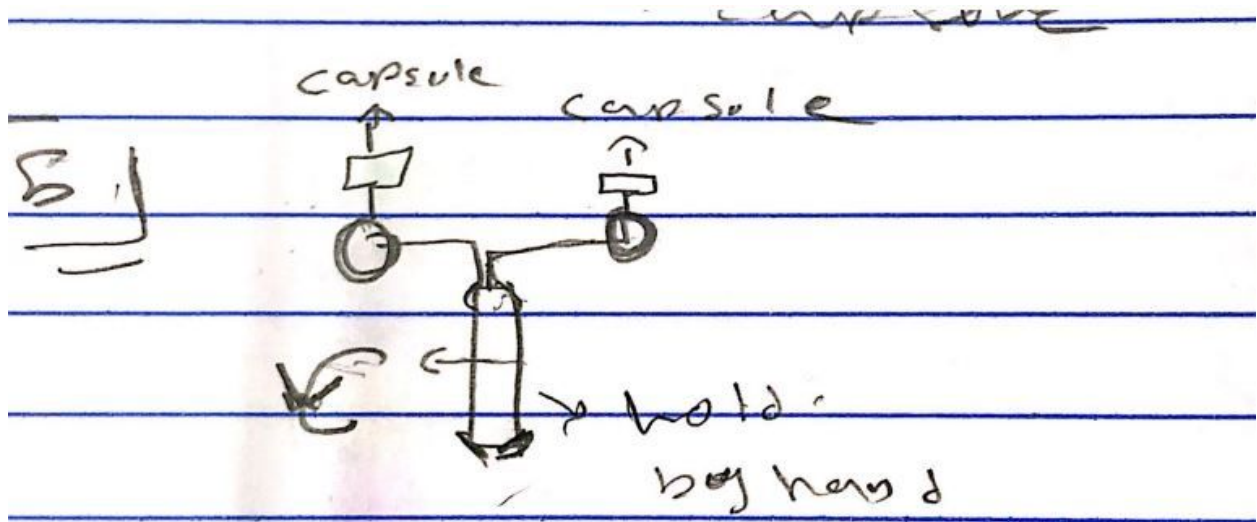 capsule
capsule
5.1
hold.
by hand